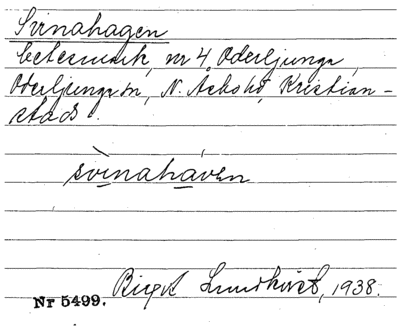 Svinahagen
betesmark, nr 4, Oderljunga,
Oderljunga sn, N. Åsbo hd, Kristian-
stads.
svìnaháven
Birgit Lundkvist, 1938.
Nr 5499.